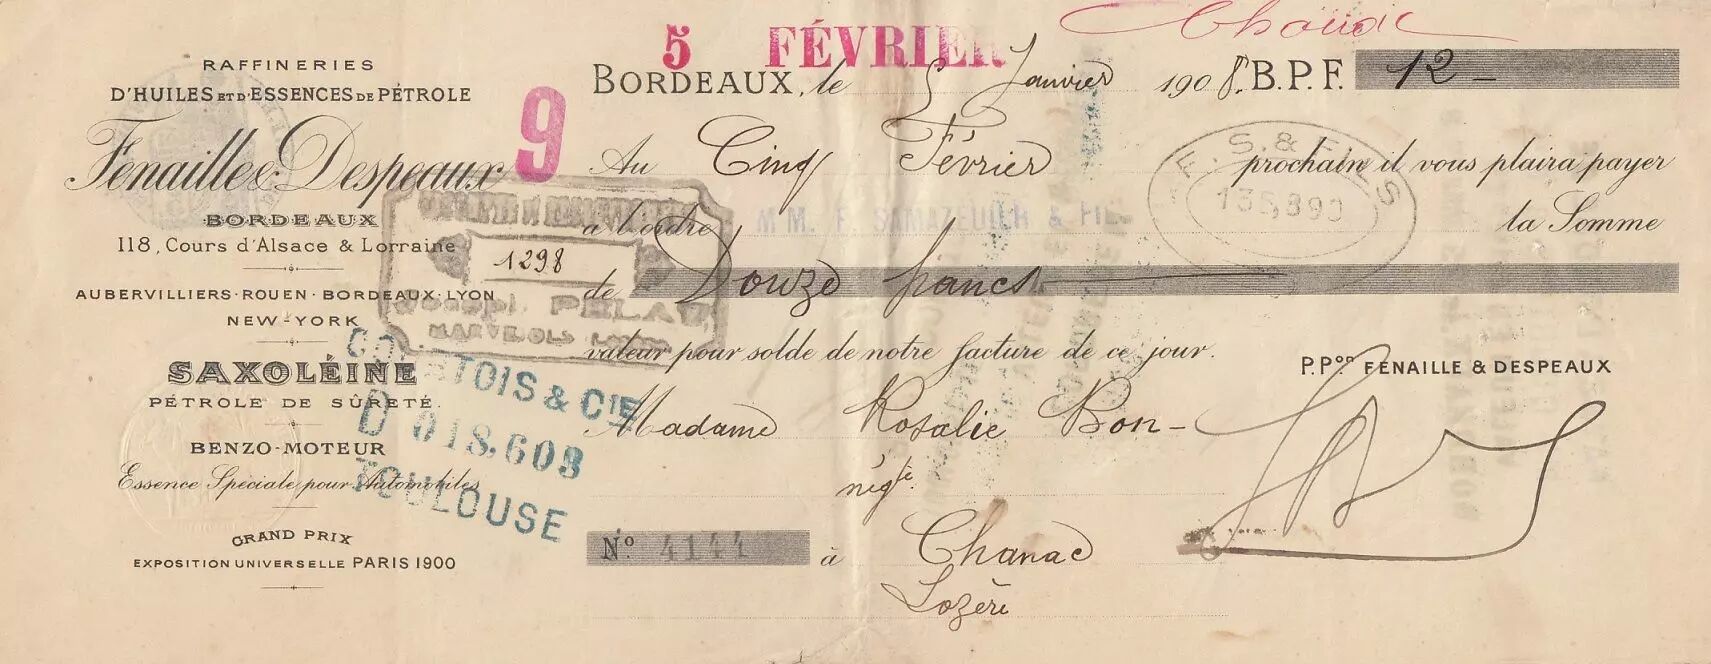 RAFFINERIES
D'HUILES ET D'ESSENCES DE PÉTROLE
Fenaille & Despeaux
BORDEAUX
118, Cours d'Alsace & Lorraine
AUBERVILLIERS · ROUEN · BORDEAUX · LYON
NEW-YORK
SAXOLÉINE
PÉTROLE DE SÛRETÉ
BENZO-MOTEUR
Essence Spéciale pour Automobiles
GRAND PRIX
EXPOSITION UNIVERSELLE PARIS 1900
5 FÉVRIER
9
BORDEAUX, le 5 Janvier 1908. B.P.F. 12 -
Au Cinq Février prochain il vous plaira payer
à l'ordre MM. F. SAMAZEUILH & FILS la Somme
de Douze francs
valeur pour solde de notre facture de ce jour.
P.Pon FENAILLE & DESPEAUX
Madame Rosalie Bon-
négte
No 4144 à Chanac
Lozère
F. S. & FILS
135,890
1298
COURTOIS & CIE
D 018,603
TOULOUSE